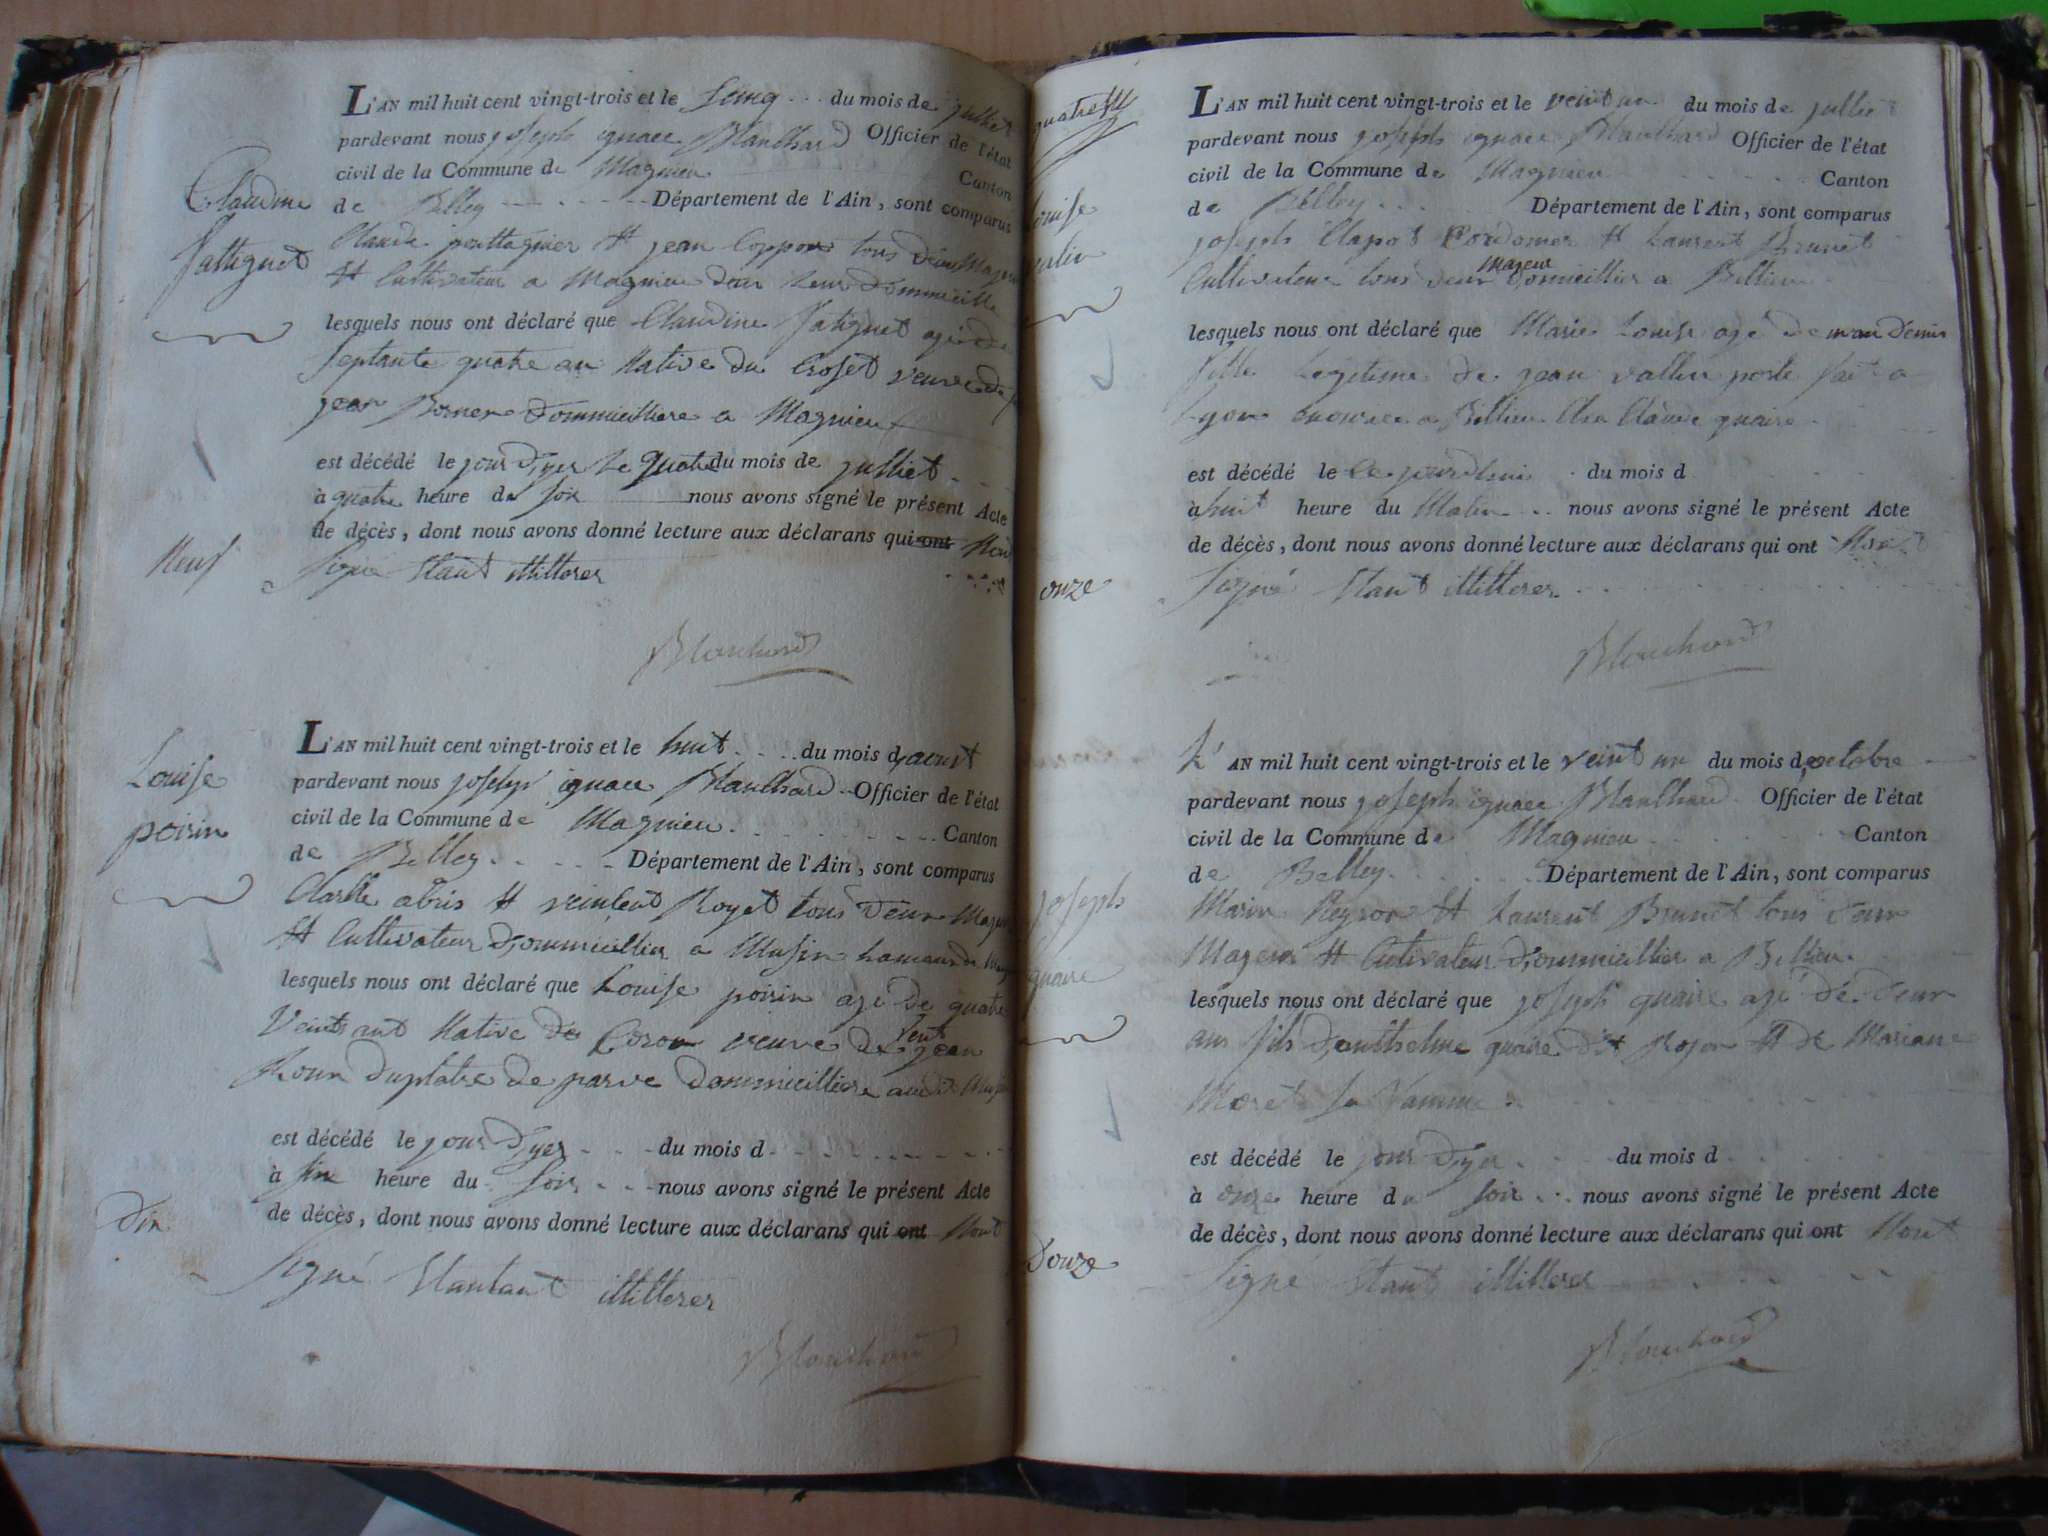 Claudine
Fattignet
Neuf
L'AN mil huit cent vingt-trois et le Sinq du mois de julliet
pardevant nous joseph ignace Blanchard Officier de l'état
civil de la Commune de Magnieu Canton
de Belley Département de l'Ain, sont comparus
Claude jean Coppon tous deux Majeur
et Cultivateur a Magnieu
lesquels nous ont déclaré que Claudine Fatignet agé de
Septante quatre an Native du Croset veuve de
jean Borner Dommicilliere a Magnieu
est décédé le jour D'yer Le quatre du mois de julliet
à quatre heure du soir nous avons signé le présent Acte
de décès, dont nous avons donné lecture aux déclarans qui ont Nont
Signé Etant illitterer
Blanchard
Louise
poirin
Dix
L'AN mil huit cent vingt-trois et le huit du mois d'aoust
pardevant nous joseph ignace Blanchard Officier de l'état
civil de la Commune de Magnieu Canton
de Belley Département de l'Ain, sont comparus
abris et Royet tous deux Majeur
et Cultivateur D'ommicillier a Musin hameau de
lesquels nous ont déclaré que Louise poirin agé de quatre
Veints ant Native de Coron veuve de feut jean
Roux Duplatre de parve Dommicilliere audit Musin
est décédé le jour D'yer du mois d
à six heure du soir nous avons signé le présent Acte
de décès, dont nous avons donné lecture aux déclarans qui ont Nont
Signé Etantant illitterer
Blanchard
quatre
Louise
valin
onze
L'AN mil huit cent vingt-trois et le veint un du mois de julliet
pardevant nous joseph ignace Blanchard Officier de l'état
civil de la Commune de Magnieu Canton
de Belley Département de l'Ain, sont comparus
joseph Clapot Cordonier et Laurent Brunet
Cultivateur tous deux Majeur Domicillier a Billieu
lesquels nous ont déclaré que Marie Louise agé de un an Demis
fille Legitime de jean vallin porte fait a
Lyon a Billieu Chez Claude quaire
est décédé le Ce jourdhui du mois d
à huit heure du Matin nous avons signé le présent Acte
de décès, dont nous avons donné lecture aux déclarans qui ont Nont
Signé Etant illitterer
Blanchard
joseph
quaire
Douze
L'AN mil huit cent vingt-trois et le veint un du mois d'octobre
pardevant nous joseph ignace Blanchard Officier de l'état
civil de la Commune de Magnieu Canton
de Belley Département de l'Ain, sont comparus
Marin Reyson et Laurent Brunet tous deux
Majeur et Cutivateur D'ommicillier a Billieu
lesquels nous ont déclaré que joseph quaire agé de deux
ans fils D'anthelme quaire dit Rojon et de Mariane
Moret sa famme
est décédé le jour D'yer du mois d
à onze heure du soir nous avons signé le présent Acte
de décès, dont nous avons donné lecture aux déclarans qui ont Nont
Signé Etant illiterer
Blanchard